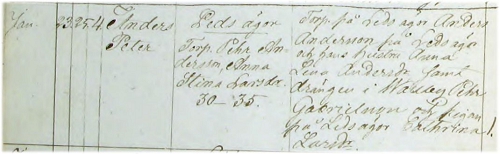 Jan. 23. 25. 4. Anders
Peter
Leds ägor
Torp. Pehr An-
dersson, Anna
Stina Larsdr.
30 – 35.
Torp. på Leds ägor Anders
Anderson på Leds ägor
och hans hustru Anna
Lena Andersdr. Samt
drängen i Wallby Pehr
Gabrielsson och pigan
på Leds ägor Cathrina
Larsdr.